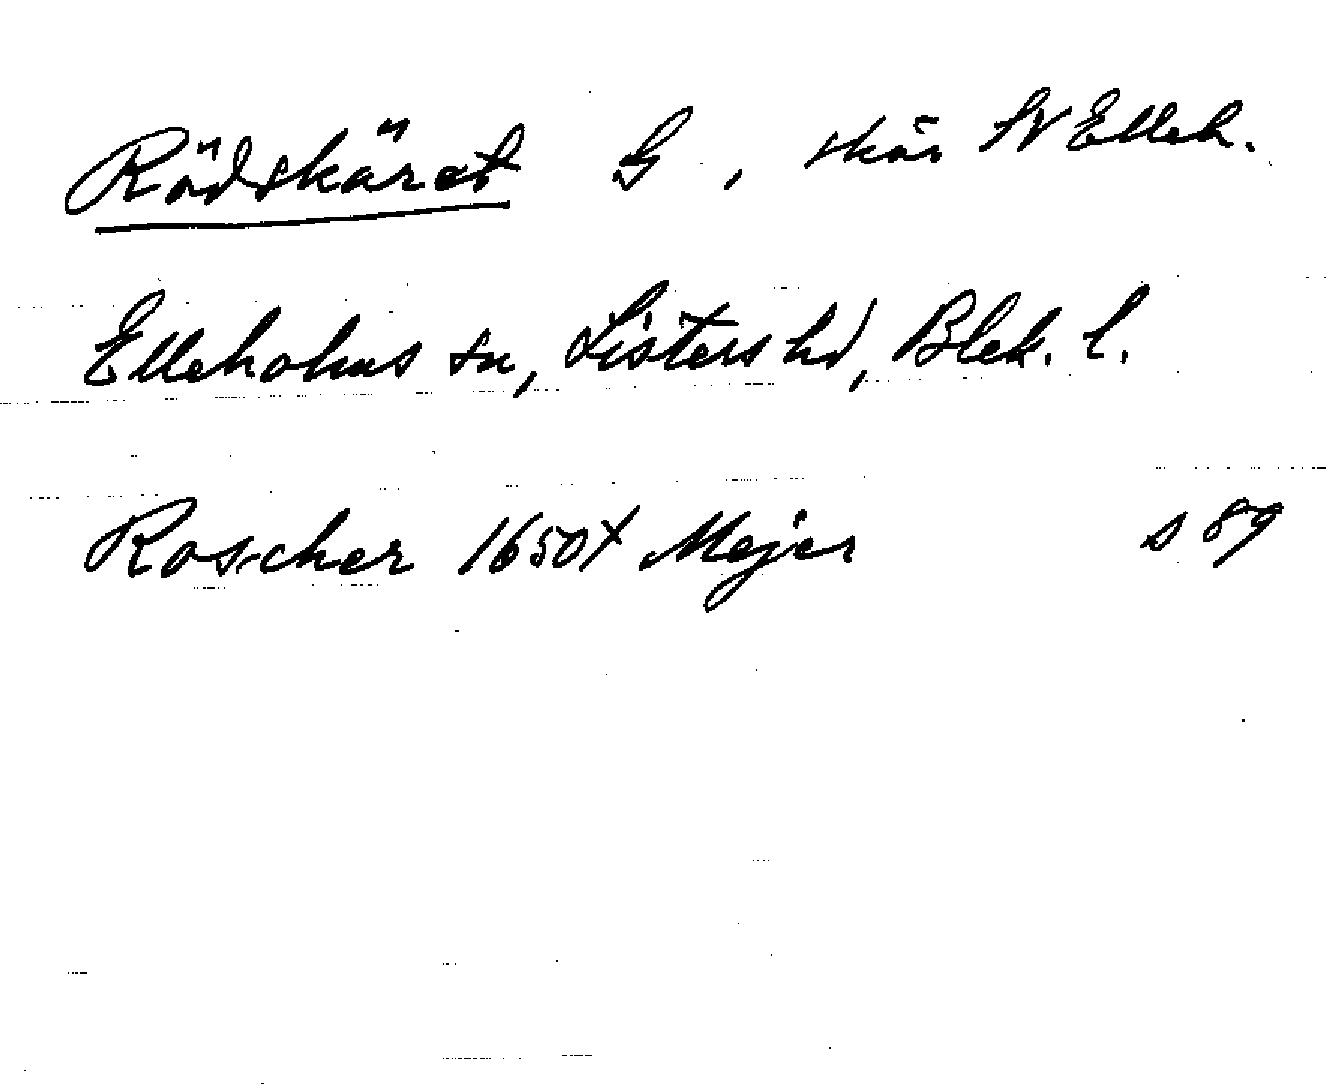 Rödskäret G, skär SV Elleh.
Elleholms sn, Listers hd, Blek. l.
Roscher 1650t Mejer s 89